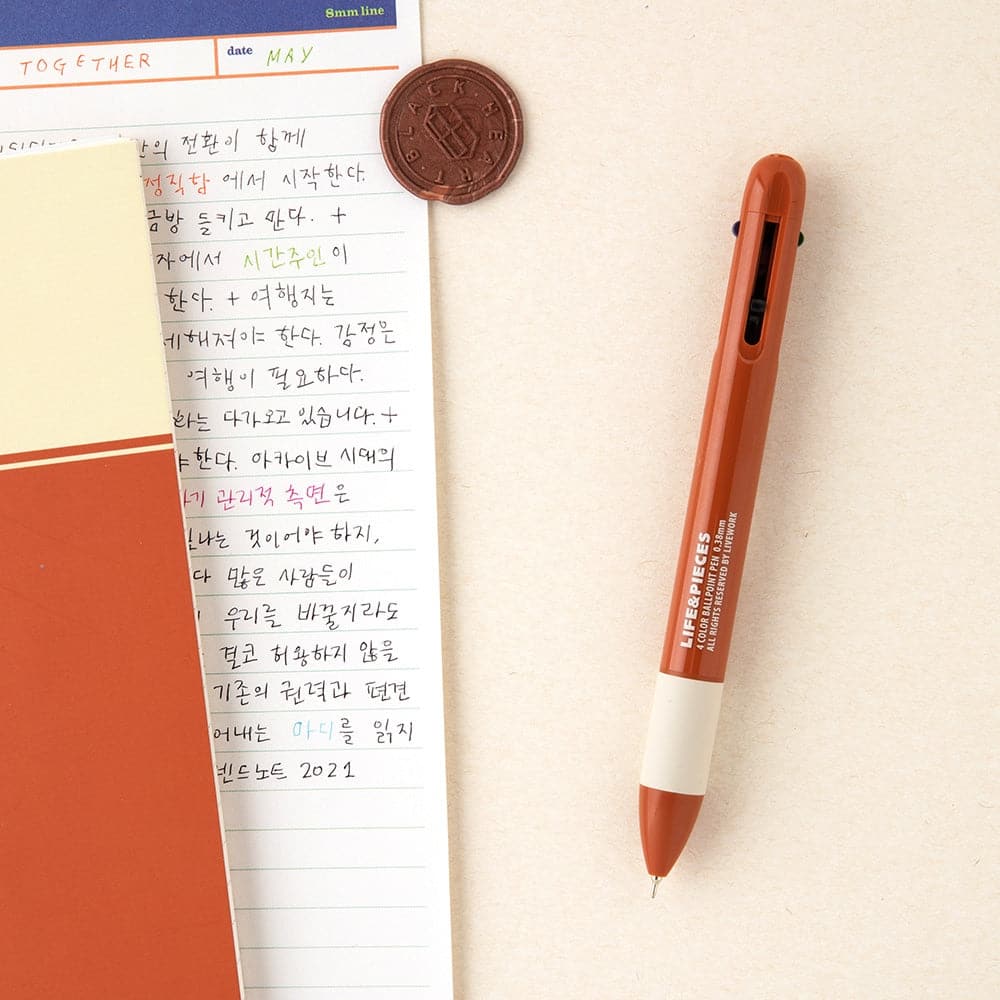 8mm line
TOGETHER
date MAY
의 전환이 함께
정직함 에서 시작한다.
금방 들키고 만다. +
자에서 시간주인이
한다. + 여행지는
해져야 한다. 감정은
여행이 필요하다.
하는 다가오고 있습니다. +
한다. 아카이브 시대의
관리적 측면은
것이어야 하지,
다 많은 사람들이
우리를 바꿀지라도
결코 허황하지 않을
기존의 권력과 편견
어내는 마디를 읽지
빈드노트 2021
BLACK HEART
LIFE&PIECES
4 COLOR BALLPOINT PEN 0.38mm
ALL RIGHTS RESERVED BY LIVEWORK